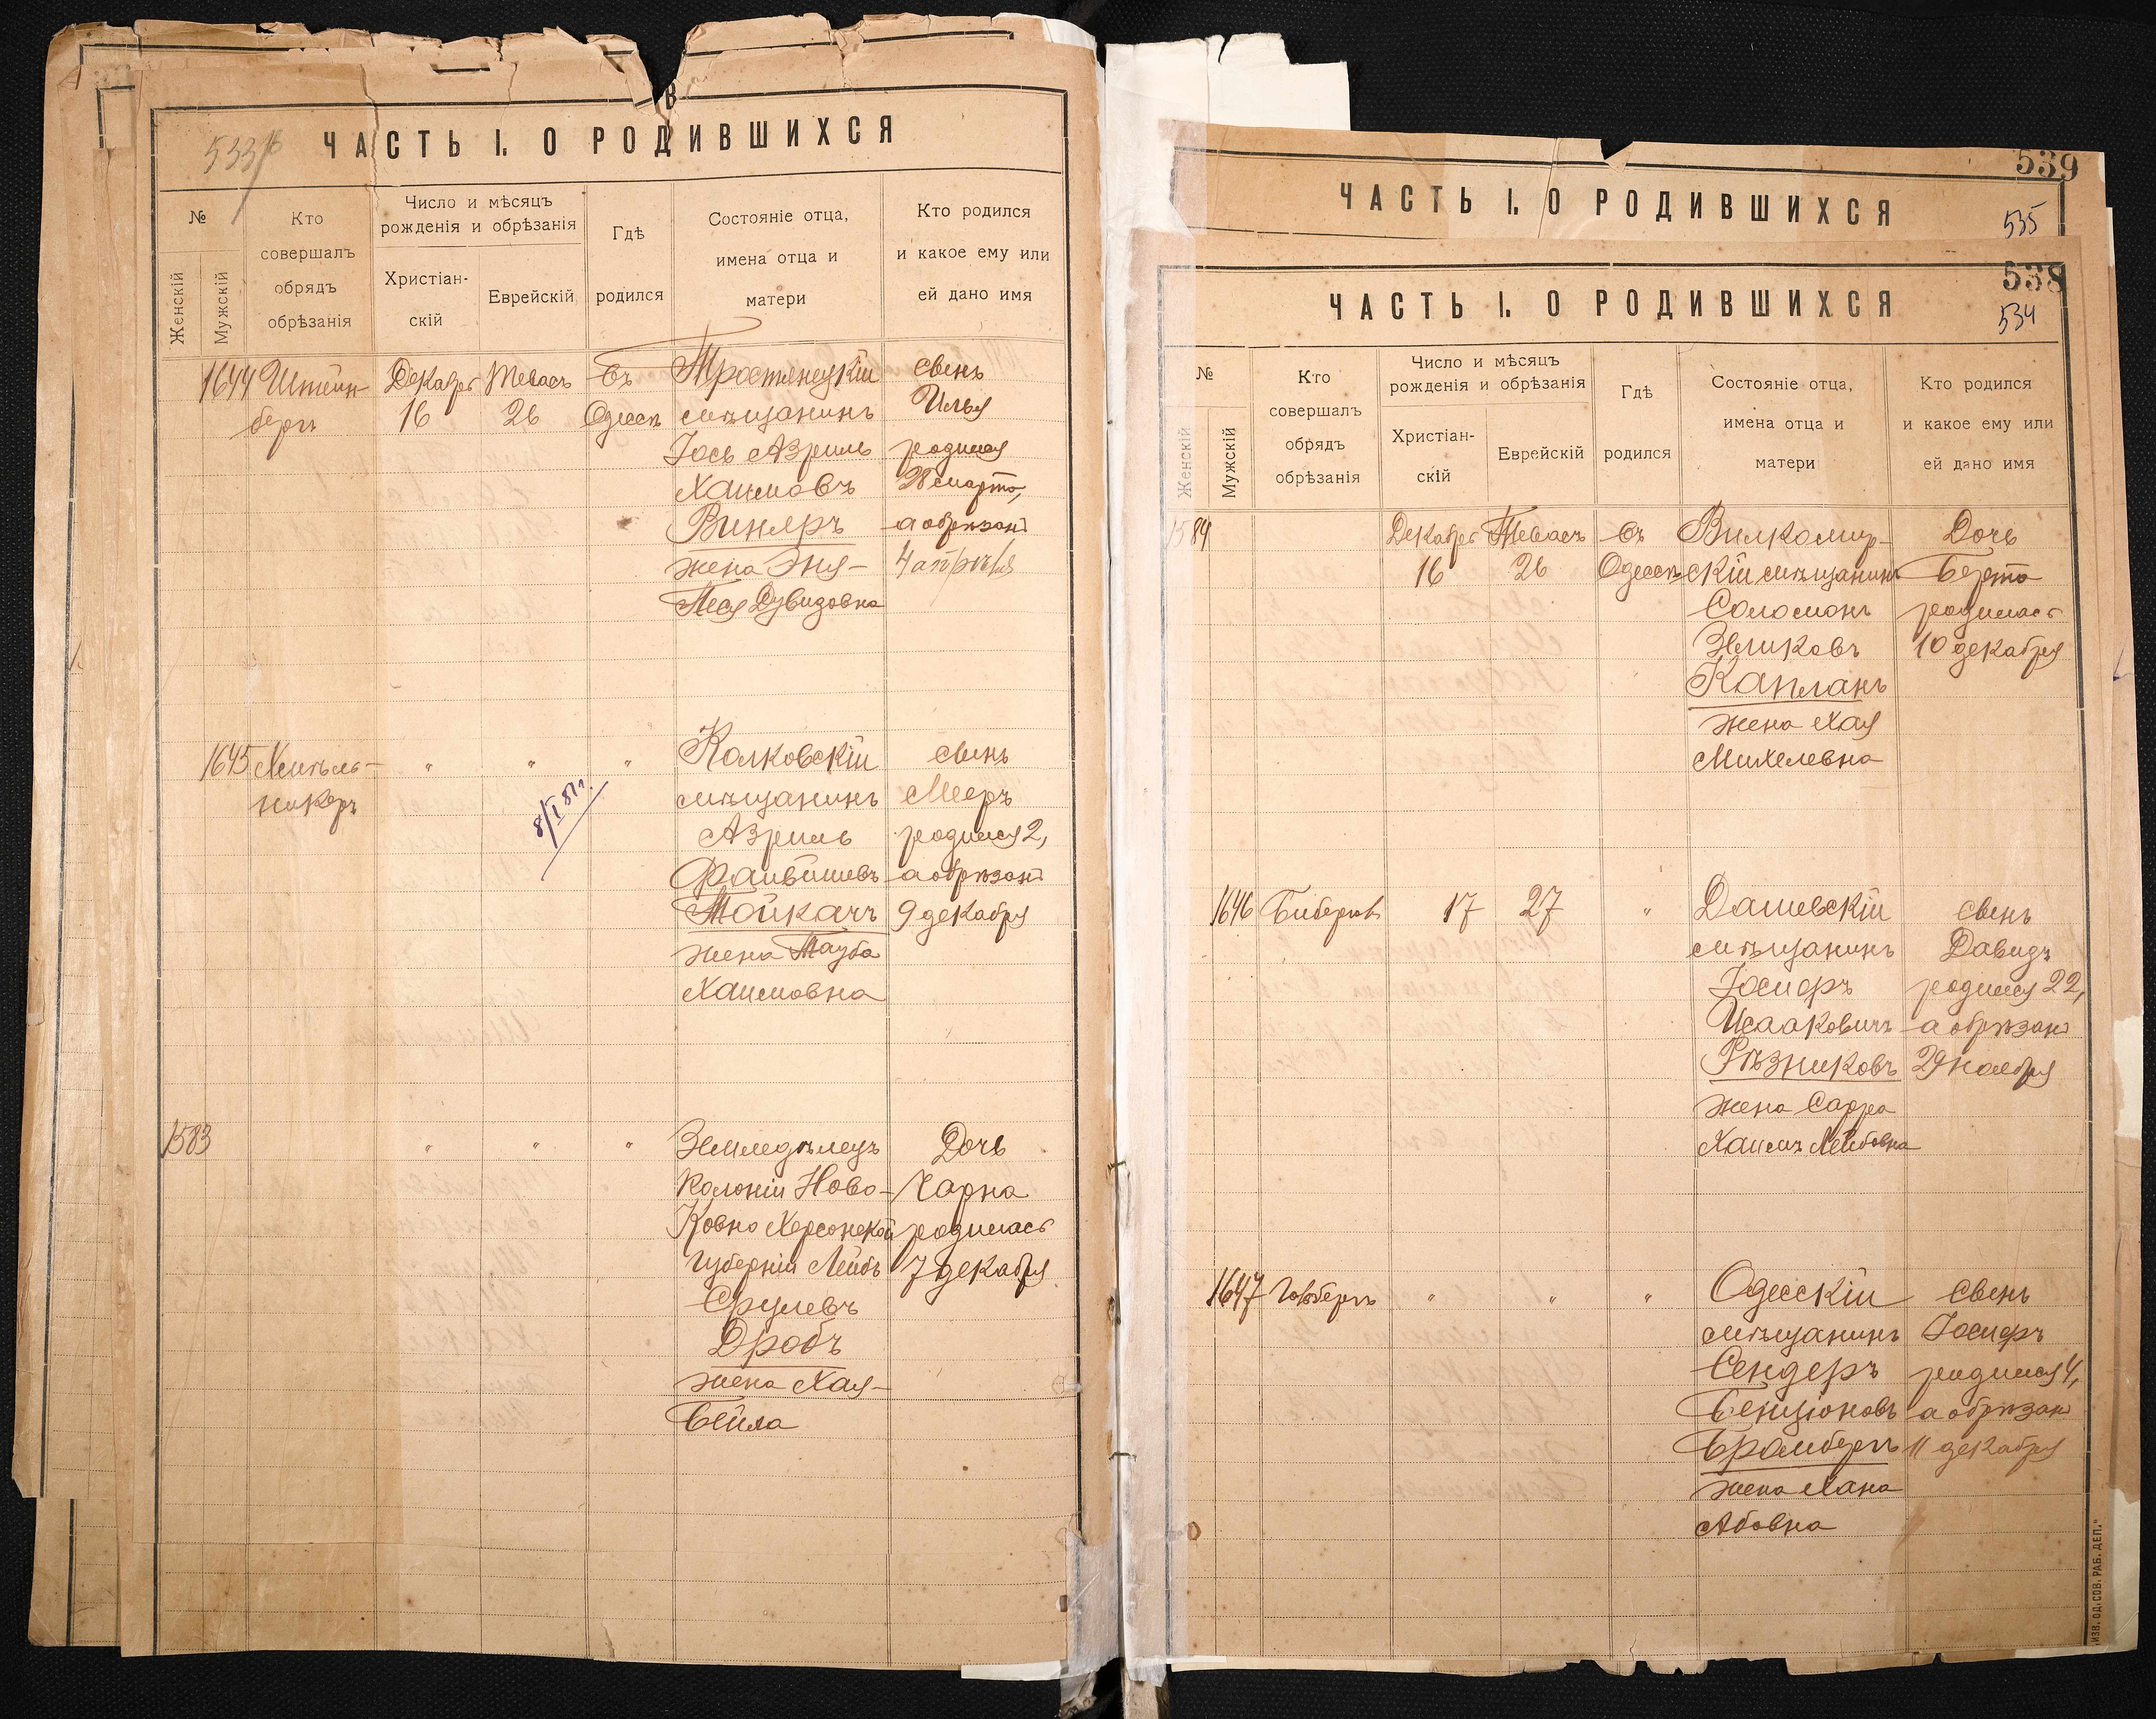 В
ЧАСТЬ I. О РОДИВШИХСЯ
№
Женскій
Мужскій
Кто
совершалъ
обрядъ
обрѣзанія
Число и мѣсяцъ
рожденія и обрѣзанія
Христіан-
скій
Еврейскій
Гдѣ
родился
Состояніе отца,
имена отца и
матери
Кто родился
и какое ему или
ей дано имя
1644 Штейн- Декабрь Тевасъ Въ Тростянецкій Сынъ
бергъ 16 26 Одессѣ мѣщанинъ Илья
Іось Азриль родился
Хаимовъ 28 марта,
Виняръ а обрѣзанъ
жена Эня- 4 апрѣля
Песя Дувидовна
1645 Хмѣль- " " " Колковскій Сынъ
никеръ мѣщанинъ Мееръ
8/I 81г.
Азриль родился 2,
Файвишевъ а обрѣзанъ
Тойкачъ 9 декабря
жена Тауба
Хаимовна
1583 " " " Земледѣлецъ Дочь
Колоніи Ново- Чарна
Ковно Херсонской родилась
Губерніи Лейбъ 7 декабря
Срулевъ
Дробъ
жена Хая-
Бейла
539
ЧАСТЬ I. О РОДИВШИХСЯ
535
538
ЧАСТЬ I. О РОДИВШИХСЯ
534
№
Женскій
Мужскій
Кто
совершалъ
обрядъ
обрѣзанія
Число и мѣсяцъ
рожденія и обрѣзанія
Христіан-
скій
Еврейскій
Гдѣ
родился
Состояніе отца,
имена отца и
матери
Кто родился
и какое ему или
ей дано имя
1584 Декабрь Тевасъ Въ Вилкомир- Дочь
16 26 Одессѣ скій мѣщанинъ Берта
Соломонъ родилась
Зеликовъ 10 декабря
Капланъ
жена Хая
Михелевна
1646 17 27 " Дашевскій Сынъ
мѣщанинъ Давидъ
Іосифъ родился 22,
Исааковичъ а обрѣзанъ
Рѣзниковъ 29 ноября
жена Сарра
Хаимъ Лейбовна
1647 " " " Одесскій Сынъ
мѣщанинъ Іосифъ
Сендеръ родился 4,
Бенціоновъ а обрѣзанъ
Бромбергъ 11 декабря
жена Хана
Абовна
ИЗВ. ОД. СОВ. РАБ. ДЕП."